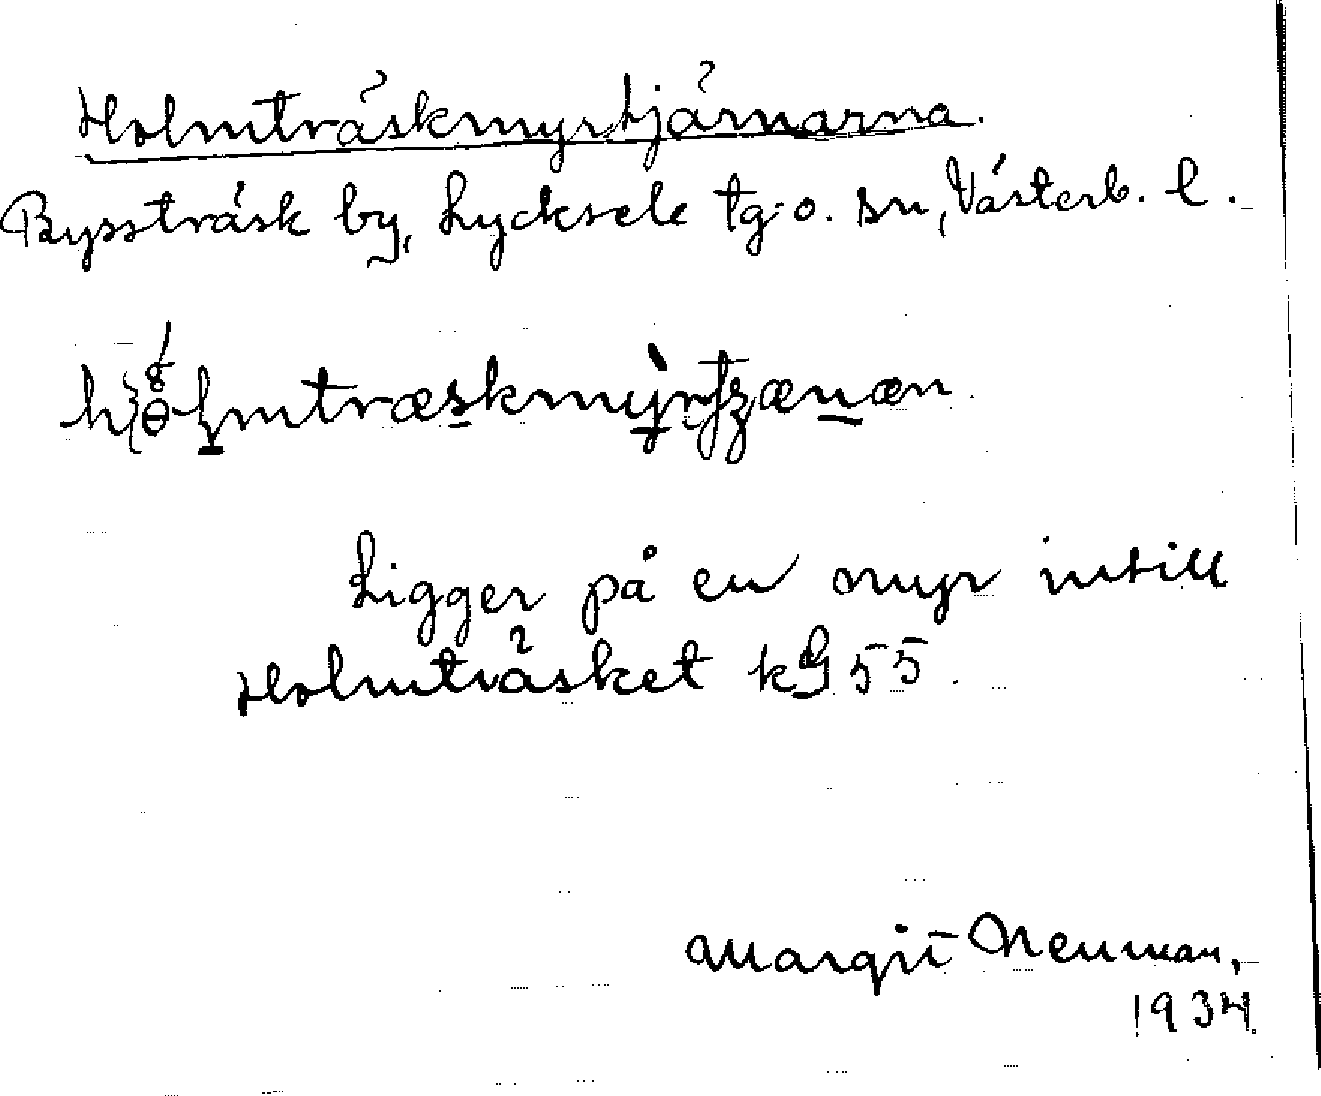 Holmträskmyrtjärnarna.
Byssträsk by, Lycksele tg. o. sn, Västerb. l.
Ligger på en myr intill
Holmträsket kG 55.
Margit Neuman,
1934.